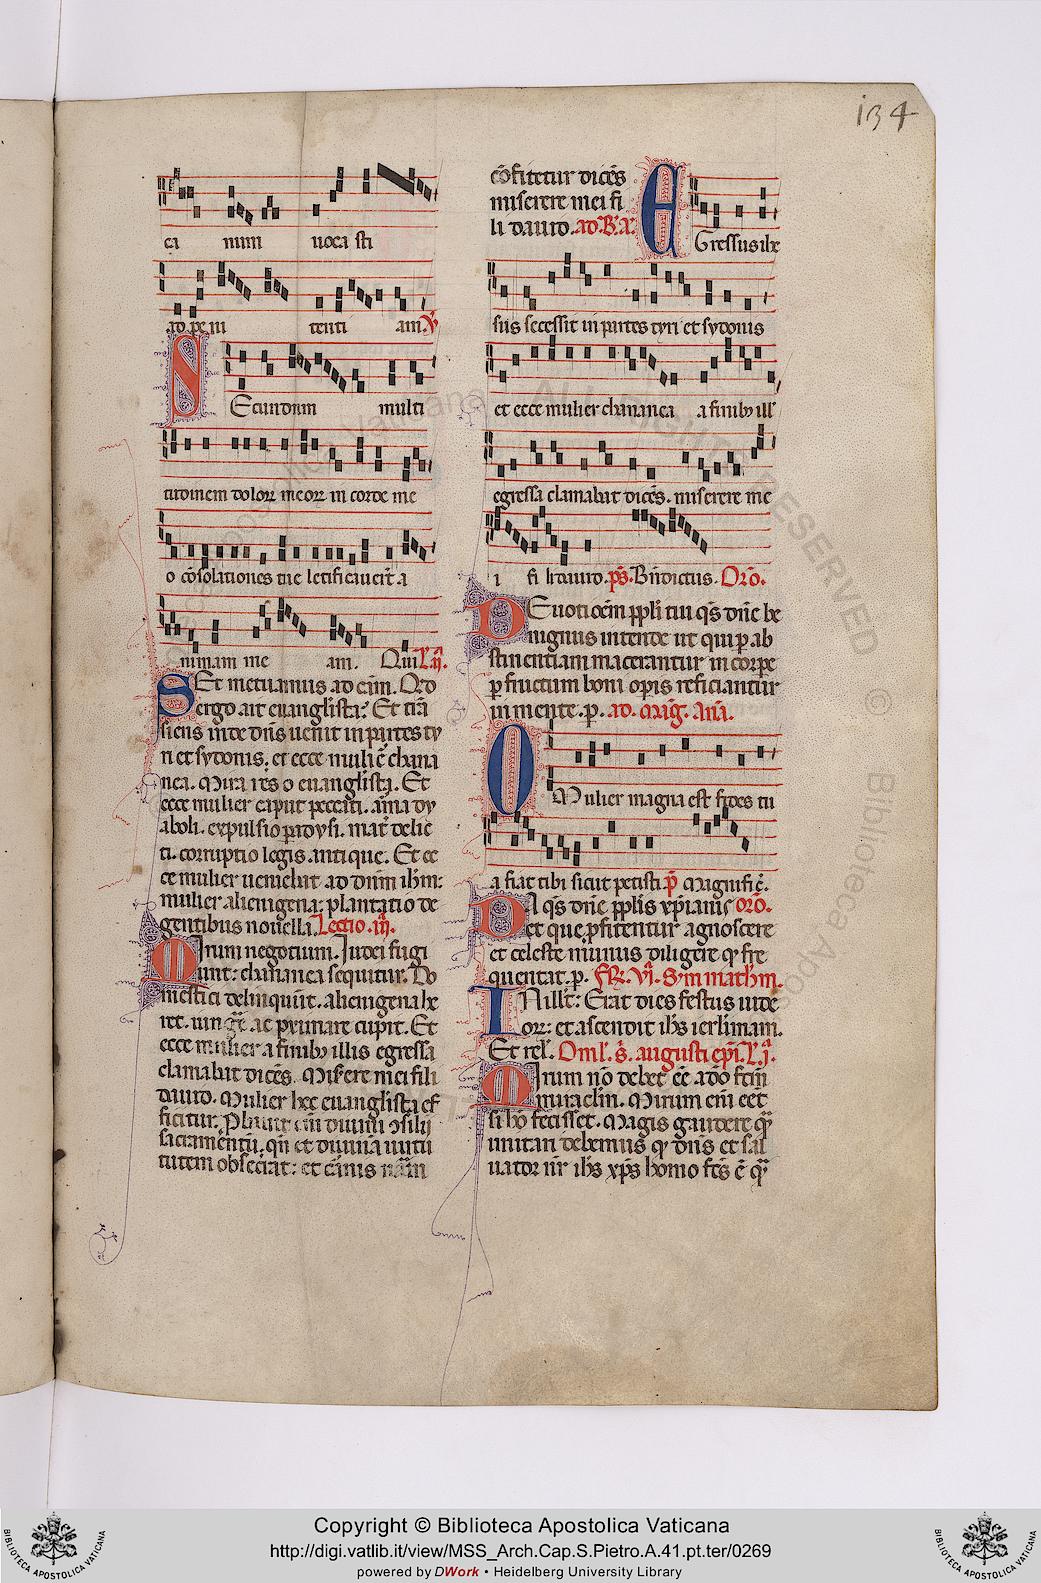 134
ca mini uoca sti
ad pe ni tenti am. V̄
Ecundum multi
tudinem doloꝝ meoꝝ in corde me
o cōsolationes tue letificauerūt a
nimam me am. Qui L̄. ij.
Et metuamus ad eūm. Quo
ergo ait euangelista: Et
siens inde dn̄s uenit in partes ty
ri et sydonis. et ecce mulier̄ chana
nea. Mira res o euanglista. Et
ecce mulier caput peccati. arma dy
aboli. expulsio paradysi. mat̄ delic
ti. corruptio legis antique. Et ec
ce mulier ueniebat ad dnm ihm:
mulier alienigena: plantatio de
gentibus nouella. Lectio. iij.
Irum negotium. Iudei fugi
unt: chananea sequitur. Do
mestici delinquūt. alienigena he
ret.
ecce mulier a finibꝫ illis egressa
clamabat dicēs. Miserere mei fili
dauid. Mulier hec euanglista ef
ficitur.
sacramentū
tutem obsecrat: et carnis
cōfitetur dicēs
miserere mei fi
li dauid. ad. B. a.
Gressus ihe
sus secessit in partes tyri et sydonis
et ecce mulier chananea a finibꝫ ill̄
egressa clamabat dicēs. miserere me
i fi li dauid. pS̄. Bn̄dictus. Orō.
Euotioēm ppl̄i tui qs̄ dn̄e be
nignus intende ut qui p ab
stinentiam macerantur in corpe
p fructum boni opis reficiantur
in mente. p. ad. mag̃. Anā.
Mulier magna est fides tu
a fiat tibi sicut petisti p̄ Magnific̄.
A qs̄ dn̄e ppl̄is xp̄ianis orō.
et que pfitentur agnoscere
et celeste munus diligere qꝫ fre
quentat. p. FR. VI. Sym mathm.
N ill̄t: Erat dies festus iude
oꝝ: et ascendit ih̄s ierl̄imam.
Et rel̄. Oml̄. s̄. augusti ep̄i. L̄. j.
Irum nō debet eē a deo fctm̄
miraclm̄. Mirum em̄ eet
si hō fecisset. Magis gaudere
mirari debemus qꝫ dn̄s et sal
uator nr̄ ih̄s xp̄s homo fcs̄ ē
Copyright © Biblioteca Apostolica Vaticana
http://digi.vatlib.it/view/MSS_Arch.Cap.S.Pietro.A.41.pt.ter/0269
powered by DWork • Heidelberg University Library